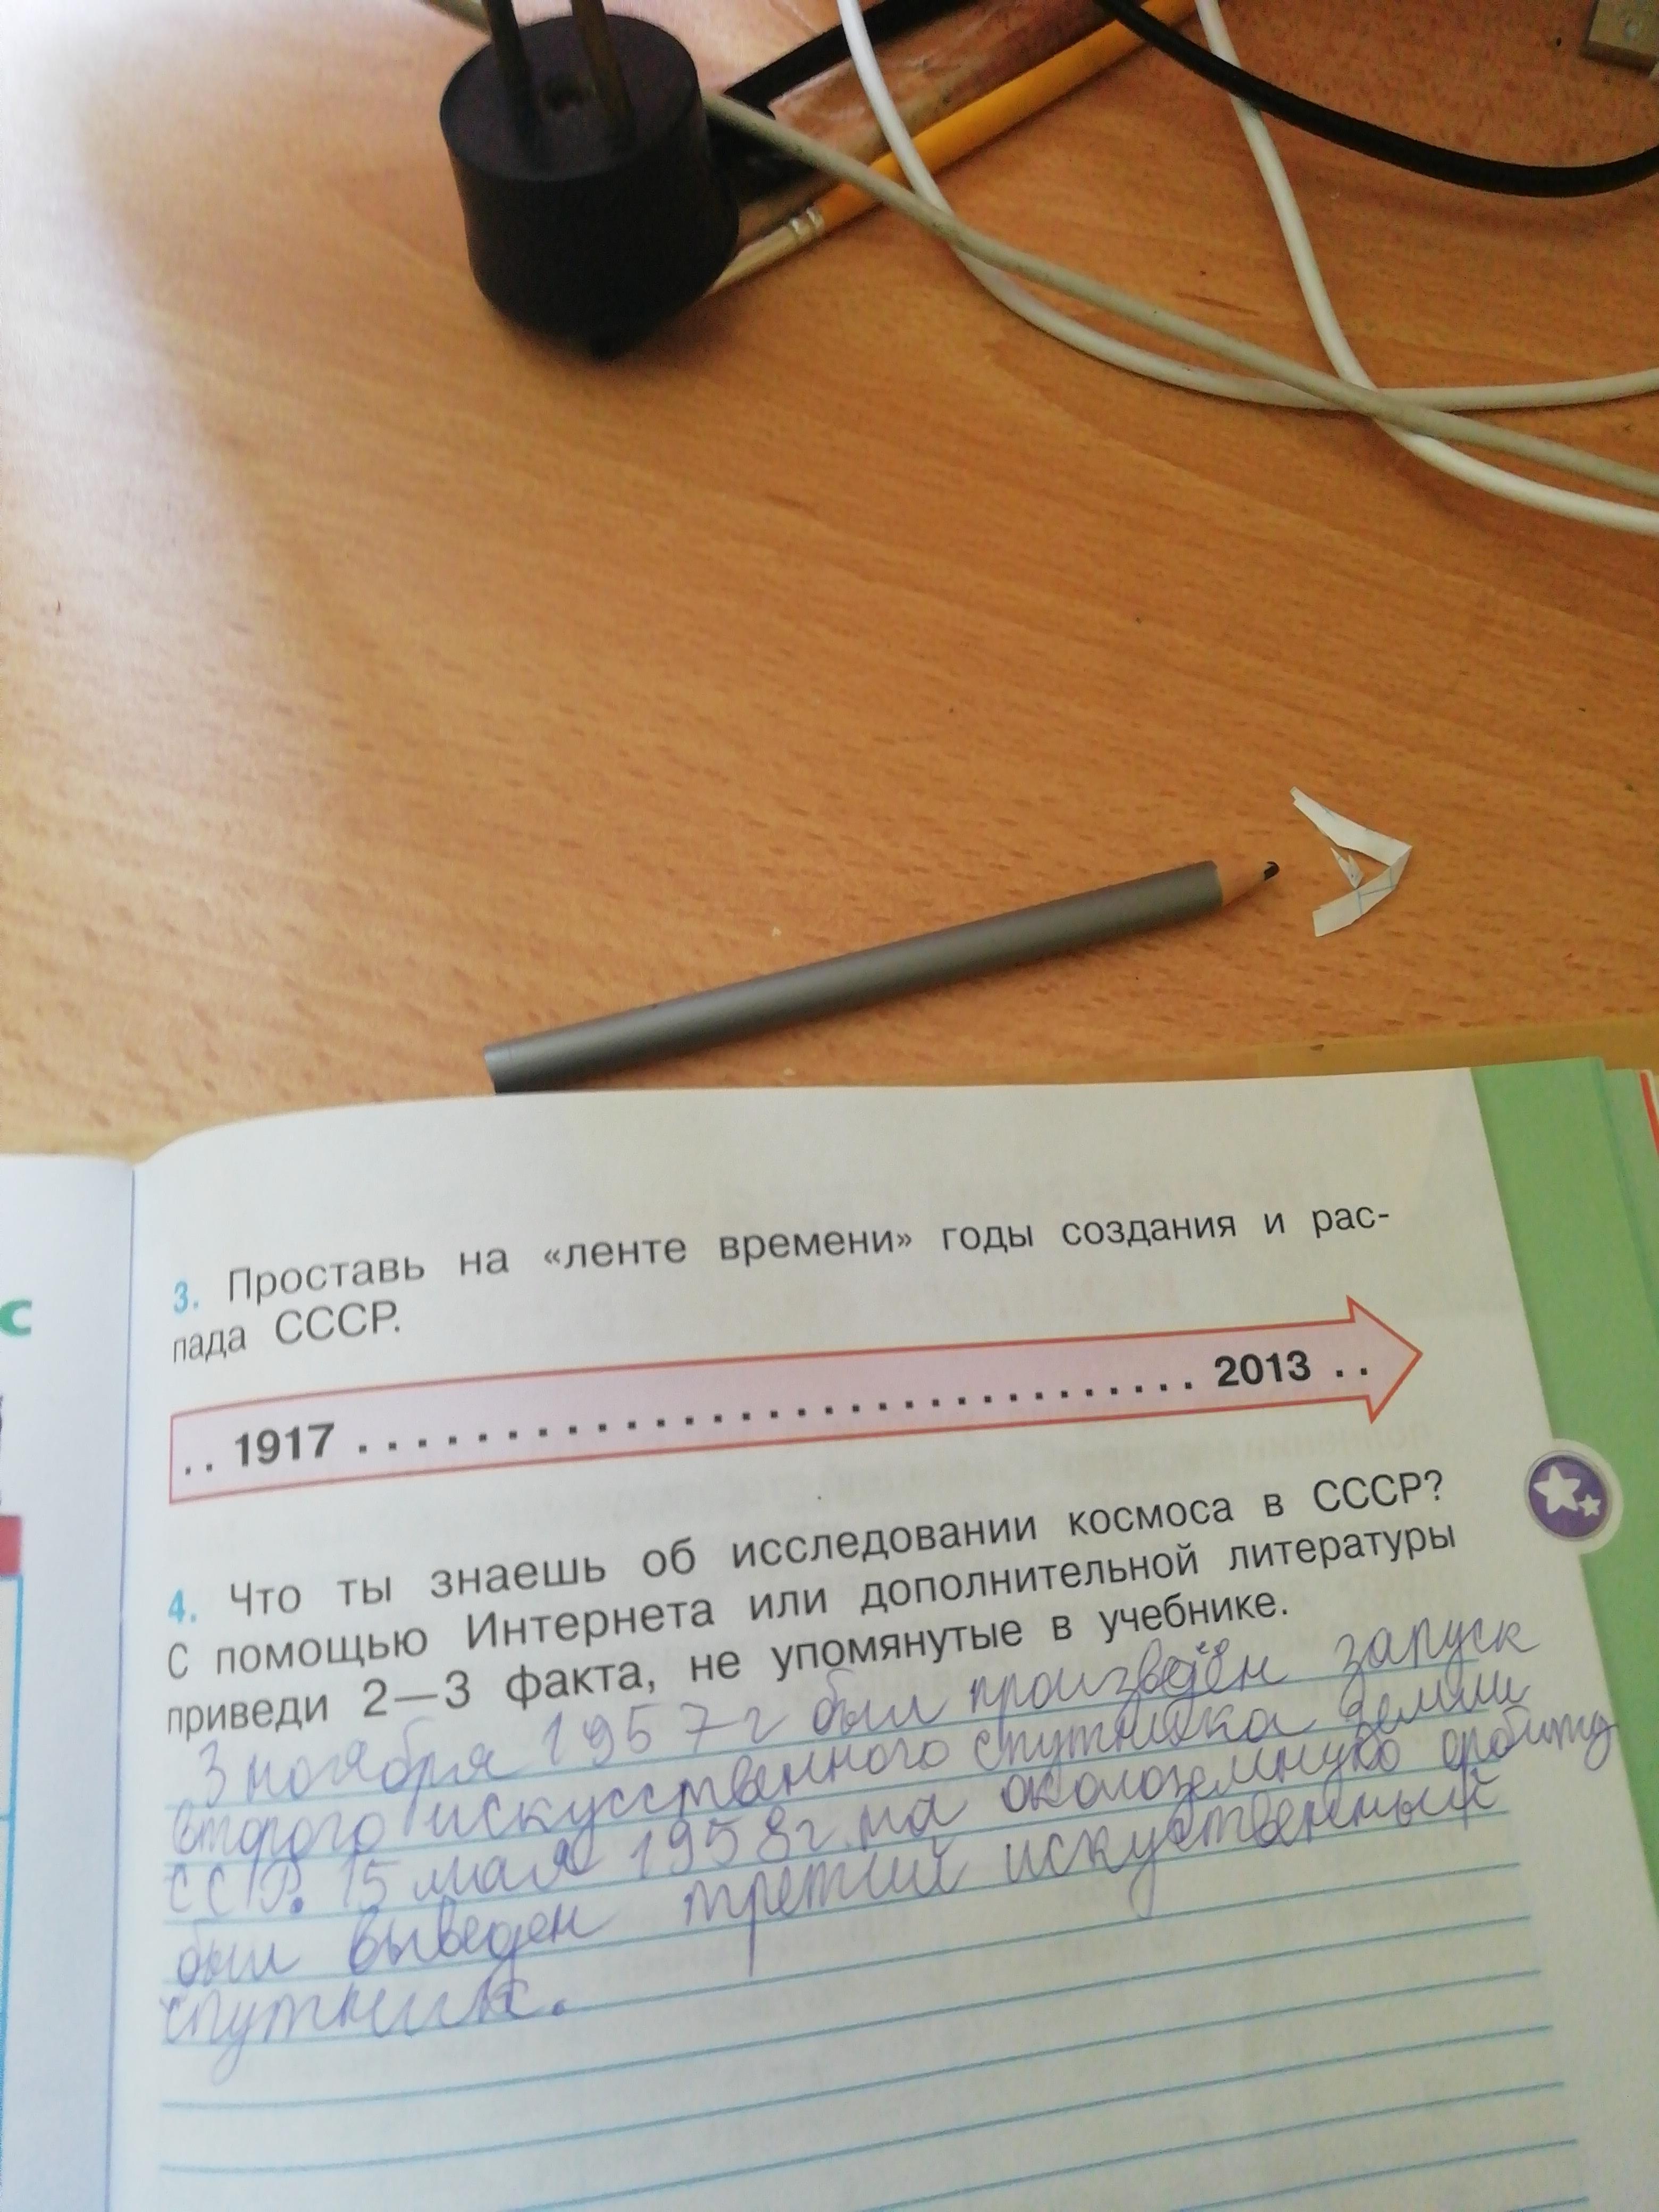 с
3. Проставь на «ленте времени» годы создания и рас-
пада СССР.
.. 1917 ............................. 2013 ..
4. Что ты знаешь об исследовании космоса в СССР?
С помощью Интернета или дополнительной литературы
приведи 2—3 факта, не упомянутые в учебнике.
3 ноября 1957 г был произведён запуск
второго искусственного спутника земли
СССР. 15 мая 1958г. на околоземную орбиту
был выведен третий искуственный
спутник.